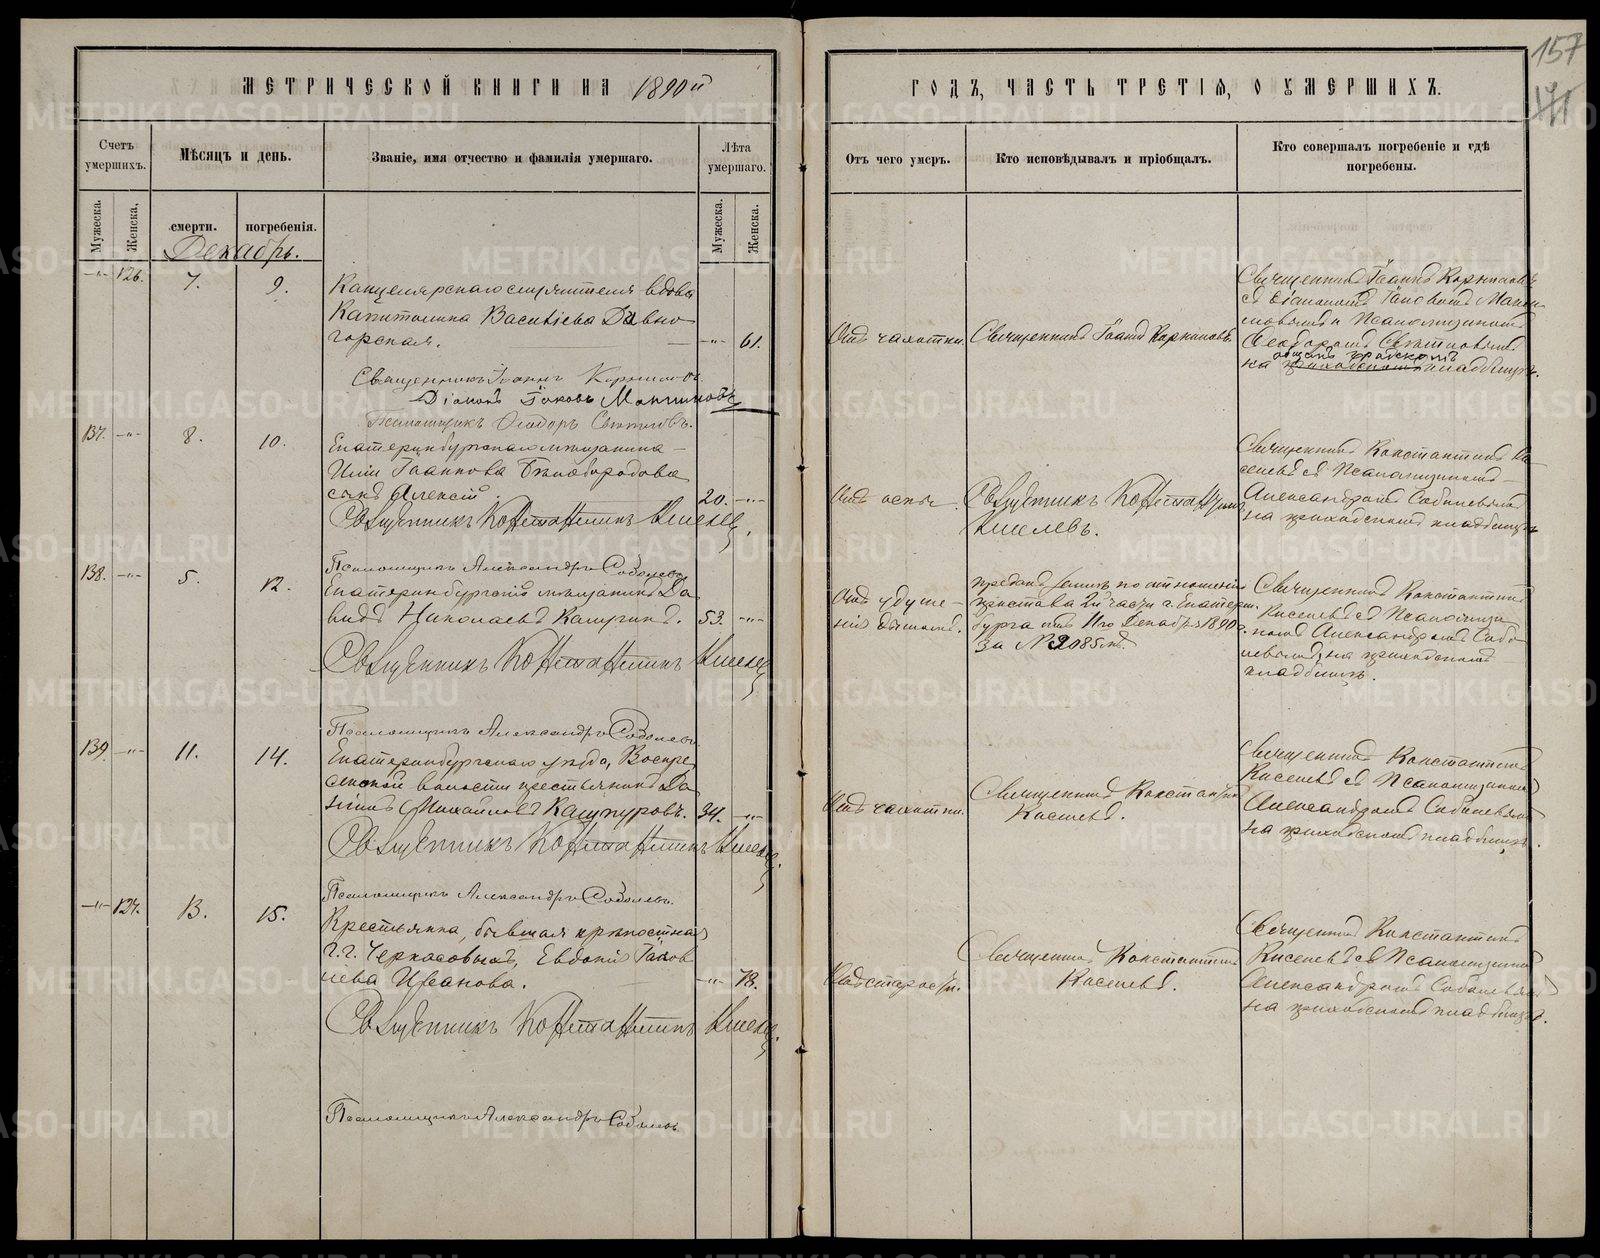 157
171
МЕТРИЧЕСКОЙ КНИГИ НА 1890й
ГОДЪ, ЧАСТЬ ТРЕТІЯ, О УМЕРШИХЪ.
Счетъ умершихъ.
Мѣсяцъ и день.
Званіе, имя отчество и фамилія умершаго.
Лѣта умершаго.
Отъ чего умеръ.
Кто исповѣдывалъ и пріобщалъ.
Кто совершалъ погребеніе и гдѣ погребены.
Мужеска.
Женска.
смерти.
погребенія.
Мужеска.
Женска.
Декабрь.
-"- 126. 7. 9.
Канцелярскаго служителя вдова
Капитолина Васильева Дивно-
горская. -"- 61.
Отъ чахотки.
Священникъ Іоаннъ Корниловъ.
Священникъ Іоаннъ Корниловъ
съ Діакономъ Іаковомъ
и Псаломщикомъ
Ѳеодоромъ
на общемъ градскомъ кладбищѣ.
Священникъ Іоаннъ Корниловъ.
Діаконъ Іаковъ
Псаломщикъ Ѳеодоръ
137. -"- 8. 10.
Екатеринбургскаго мѣщанина
Иліи Іаннова Бѣлобородова
сынъ Алексій 20. -"-
Отъ оспы.
Священникъ Константинъ
Киселевъ.
Священникъ Константинъ Ки-
селевъ съ Псаломщикомъ
Александромъ Соболевымъ
на приходскомъ кладбищѣ
Священникъ Константинъ Киселев
Псаломщикъ Александръ Соболевъ
138. -"- 5. 12.
Екатеринбургскій мѣщанинъ Да-
видъ Николаевъ 53. -"-
Отъ удуше-
нія дымомъ.
преданъ землѣ по отношенію
пристава 2й части г. Екатерин-
бурга отъ 11го Декабря 1890 г.
за №
Священникъ Константинъ
Киселевъ съ Псаломщи-
комъ Александромъ Собо-
левымъ, на приходскомъ
кладбищѣ.
Священникъ Константинъ Киселев
Псаломщикъ Александръ Соболевъ
139. -"- 11. 14.
Екатеринбургскаго уѣзда, Воскре-
сенской волости крестьянинъ Да-
ніилъ Михайловъ 34. -"-
Отъ чахотки.
Священникъ Константинъ
Киселевъ.
Священникъ Константинъ
Киселевъ съ Псаломщикомъ
Александромъ Соболевымъ
на приходскомъ кладбищѣ.
Священникъ Константинъ Киселев
Псаломщикъ Александръ Соболевъ.
-"- 127. 13. 15.
Крестьянка, бывшая крѣпостная
г.г. Черкасовыхъ, Евдокія Іаков-
лева Иванова. -"- 78.
Отъ старости.
Священникъ Константинъ
Киселевъ.
Священникъ Константинъ
Киселевъ съ Псаломщикомъ
Александромъ Соболевымъ
на приходскомъ кладбищѣ.
Священникъ Константинъ Киселев
Псаломщикъ Александръ Соболевъ
METRIKI.GASO-URAL.RU